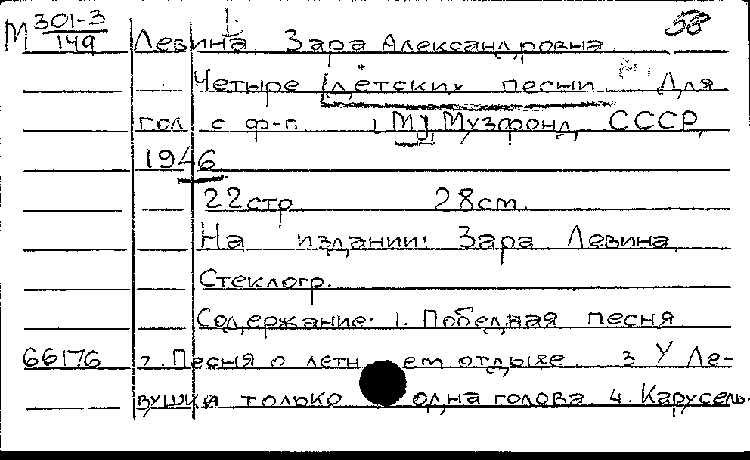 М 301-3 53
149 Левина Зара Александровна
Четыре [детских песни Для
гол с ф-п [М], Музфонд СССР,
1946
22стр 28см.
На издании: Зара Левина
Стеклогр.
Содержание: 1. Победная песня
66176 2. Песня о летнем отдыхе 3 У Ле-
вушка только одна голова. 4. Карусель.